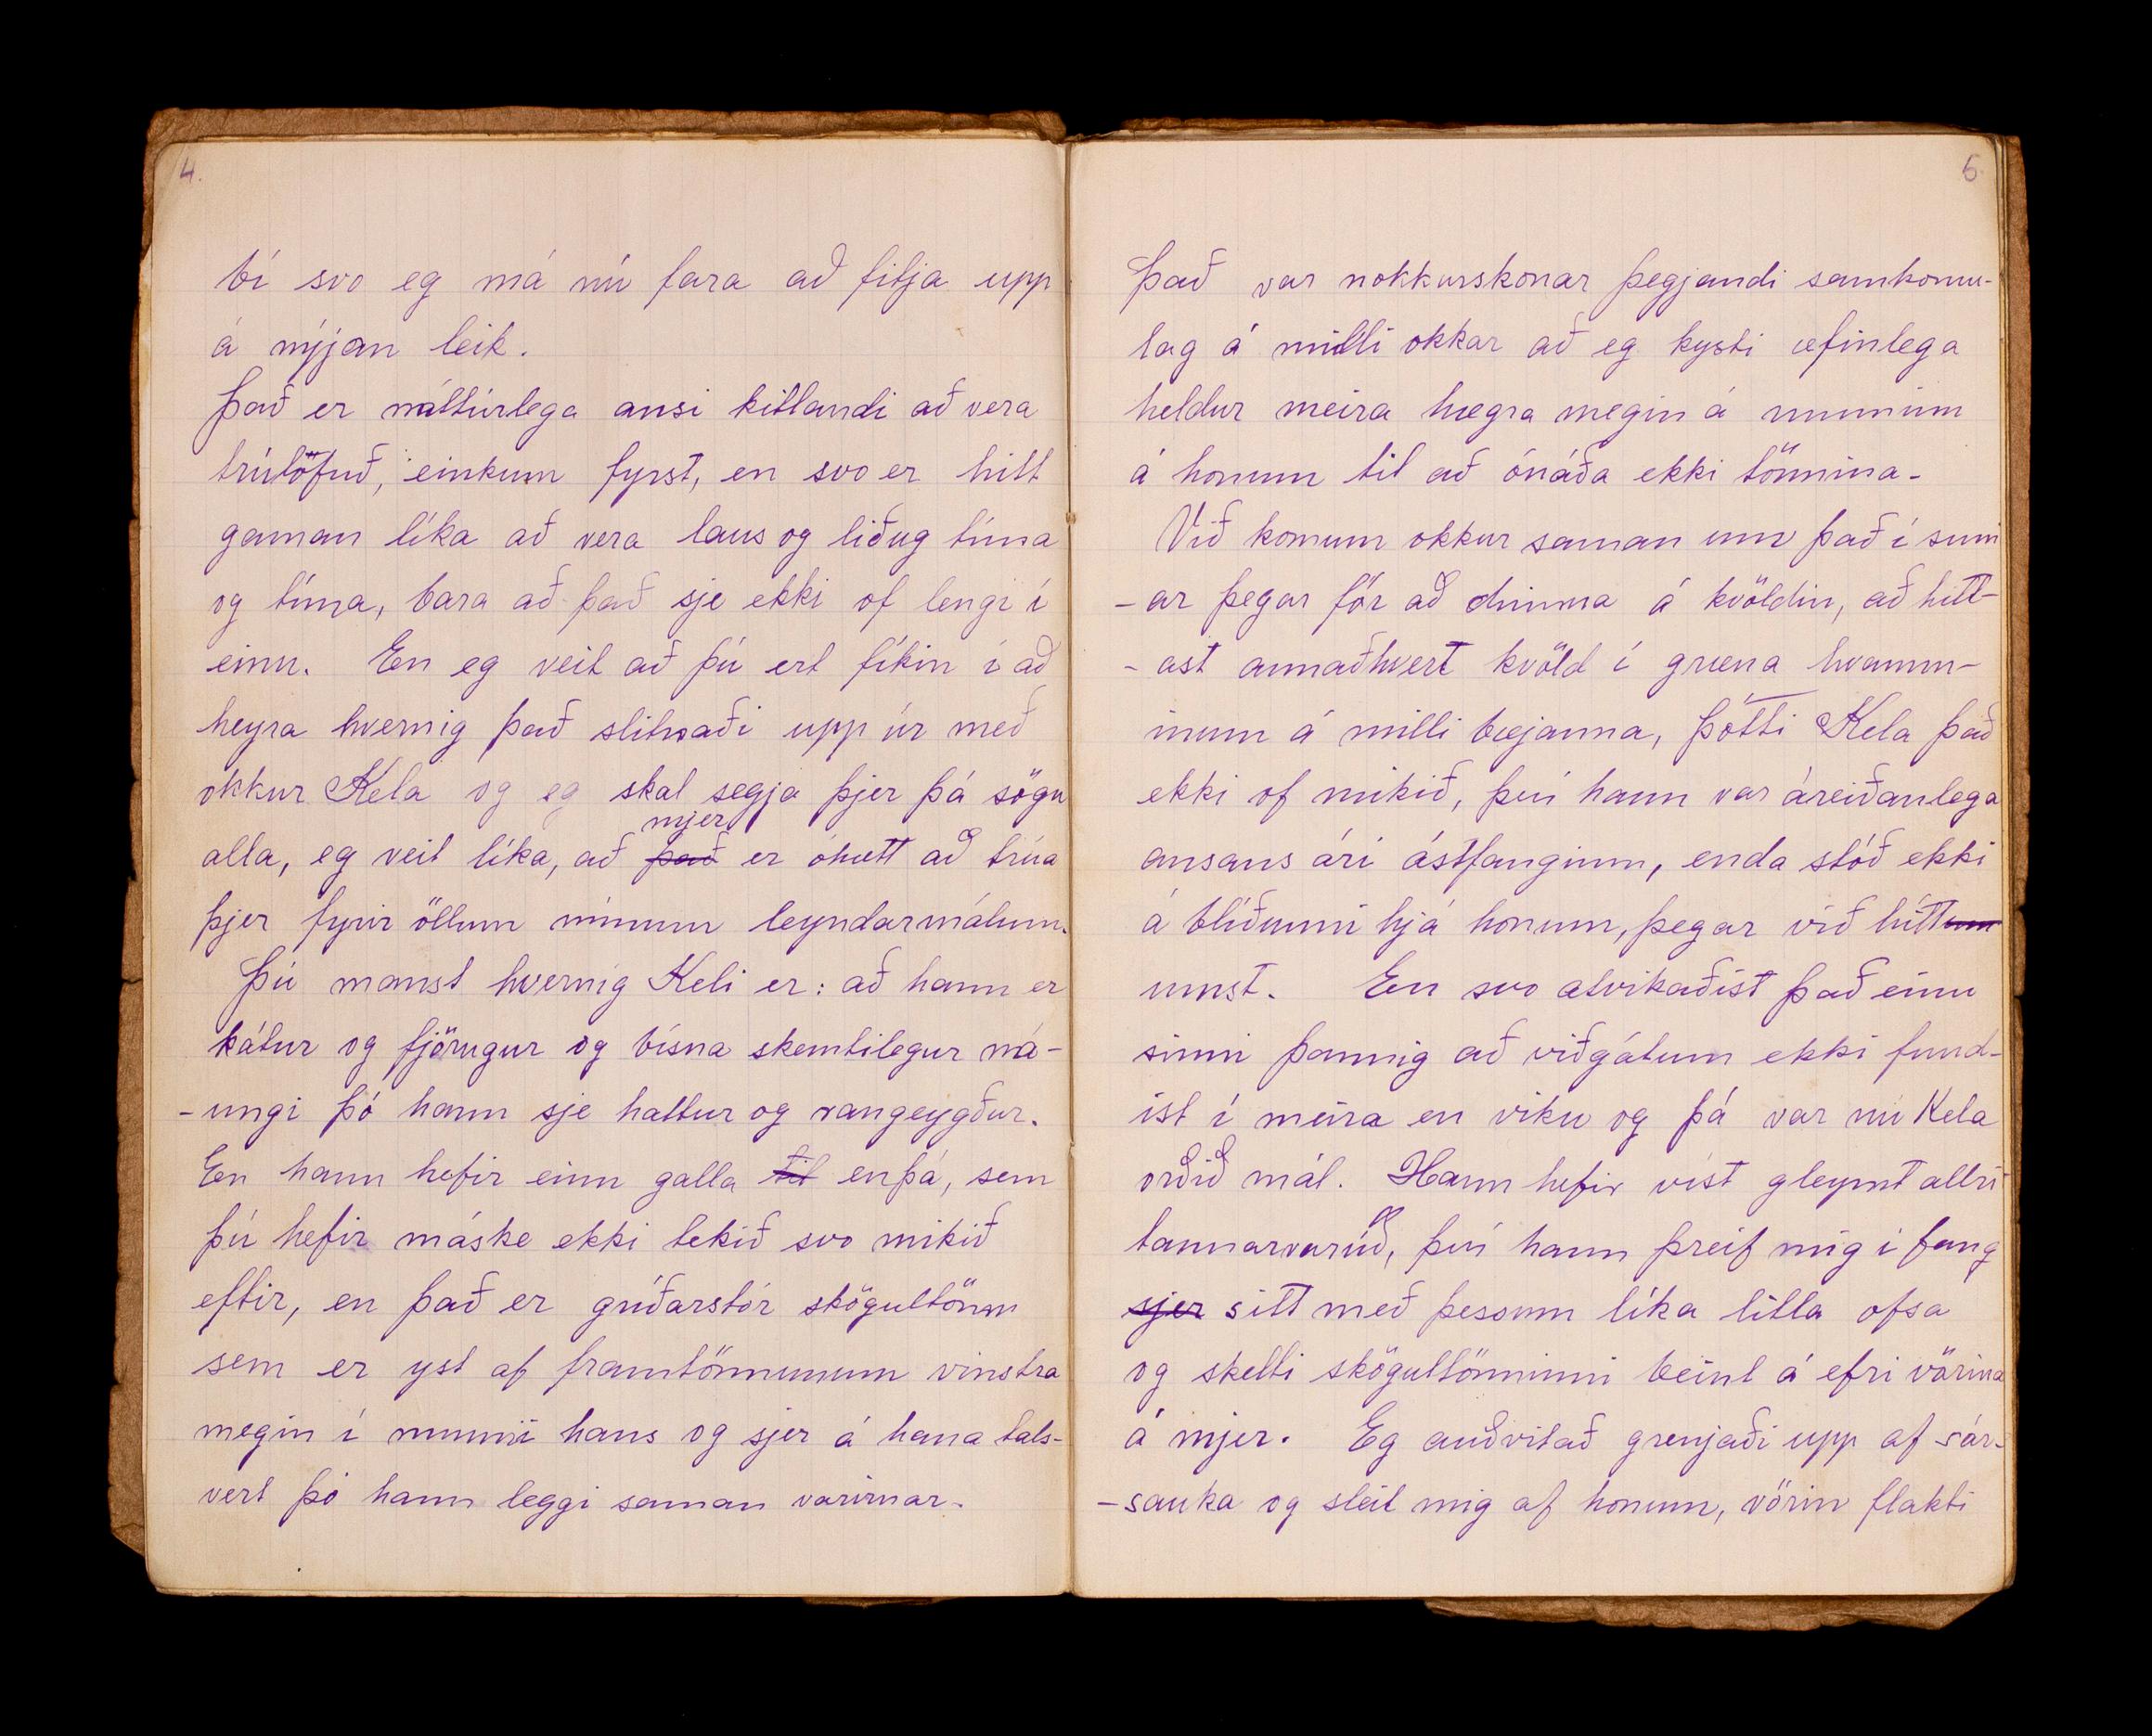 4.
bí svo eg má nú fara að fitja upp
á nýjan leik.
Það er náttúrlega ansi kitlandi að vera
trúlöfuð, einkum fyrst, en svo er hitt
gaman líka að vera laus og liðug tíma
og tíma, bara að það sje ekki of lengi í
einu. En eg veit að þú ert fíkin í að
heyra hvernig það slitnaði upp úr með
okkur Kela og eg skal segja þjer þá sögu
mjer
alla, eg veit líka, að það er óhætt að trúa
þjer fyrir öllum mínum leyndarmálum.
Þú manst hvernig Keli er: að hann er
kátur og fjörugur og bísna skemtilegur ná-
-ungi þó hann sje haltur og rangeygður.
En hann hefir einn galla til enþá, sem
þú hefir máske ekki tekið svo mikið
eftir, en það er gríðarstór skögultönn
sem er yst af framtönnunum vinstra
megin í munni hans og sjer á hana tals-
vert þó hann leggi saman varirnar.
5.
Það var nokkurskonar þegjandi samkomu-
lag á milli okkar að eg kysti æfinlega
heldur meira hægra megin á munnum
á honum til að ónáða ekki tönnina.
Við komum okkur saman um það í sum
-ar þegar fór að dimma á kvöldin, að hitt-
-ast annaðhvert kvöld í græna hvamm-
inum á milli bæjanna, þótti Kela það
ekki of mikið, því hann var áreiðanlega
ansans ári ástfanginn, enda stóð ekki
á blíðunni hjá honum, þegar við hittum
umst. En svo atvikaðist það einu
sinni þannig að við gátum ekki fund-
ist í meira en viku og þá var nú Kela
orðið mál. Hann hefir víst gleymt allri
tannarvarúð, því hann þreif mig í fang
sjer sitt með þessum líka litla ofsa
og skelti skögultönninni beint á efri vörina
á mjer. Eg auðvitað grenjaði upp af sár-
-sauka og sleit mig af honum, vörin flakti